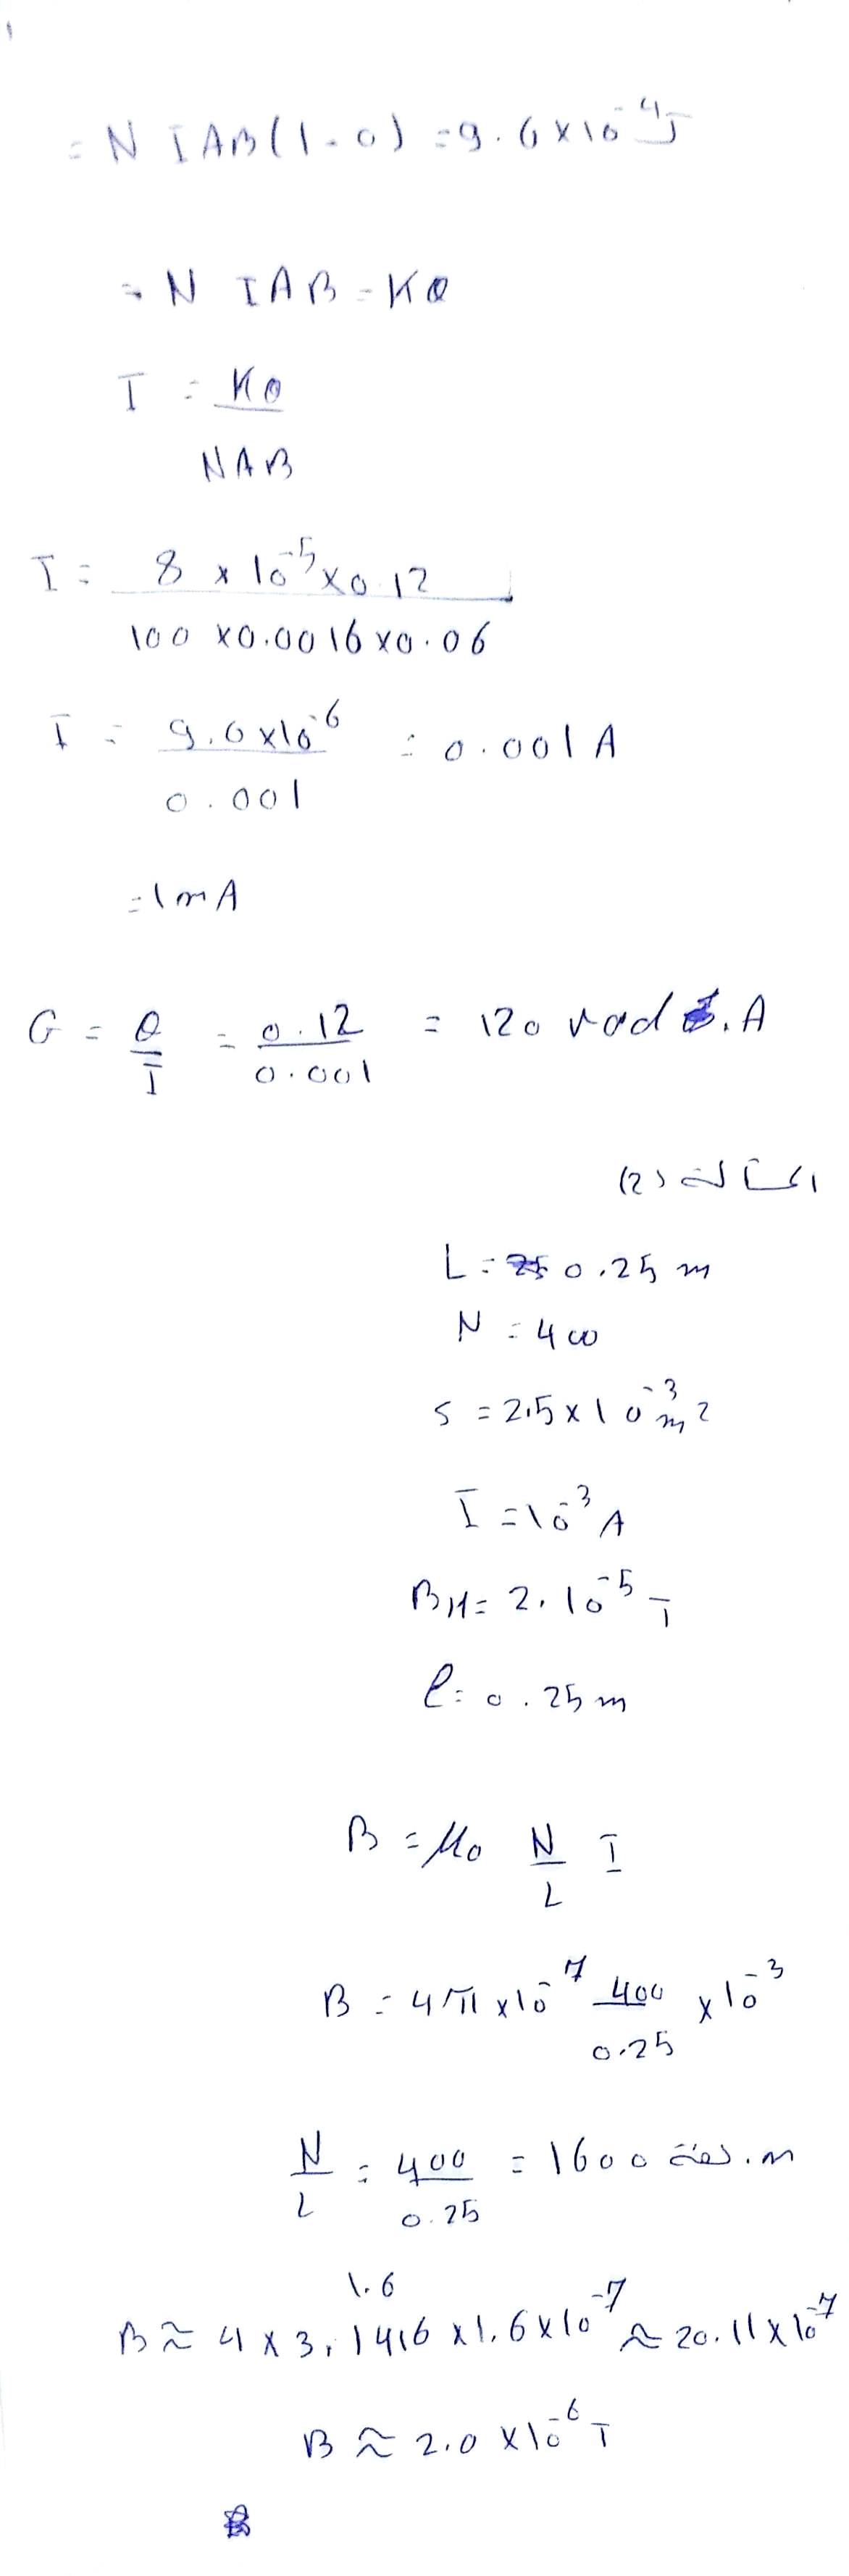 = N I A B (1 - 0) = 9.6 x 10⁻⁴ J
= N I A B = K θ
I = Kθ / NAB
I = 8 x 10⁻⁵ x 0.12 / 100 x 0.0016 x 0.06
I = 9.6 x 10⁻⁶ / 0.001 = 0.001 A
= 1 m A
G = θ / I = 0.12 / 0.001 = 120 rad . A
(2)
L = 0.25 m
N = 400
S = 2.5 x 10⁻³ m²
I = 10⁻³ A
BH = 2. 10⁻⁵ T
l = 0.25 m
B = μ₀ N / L I
B = 4π x 10⁻⁷ 400 / 0.25 x 10⁻³
N / L = 400 / 0.25 = 1600 لفة . m
1.6
B ≈ 4 x 3,1416 x 1,6 x 10⁻⁷ ≈ 20.11 x 10⁻⁷
B ≈ 2.0 x 10⁻⁶ T